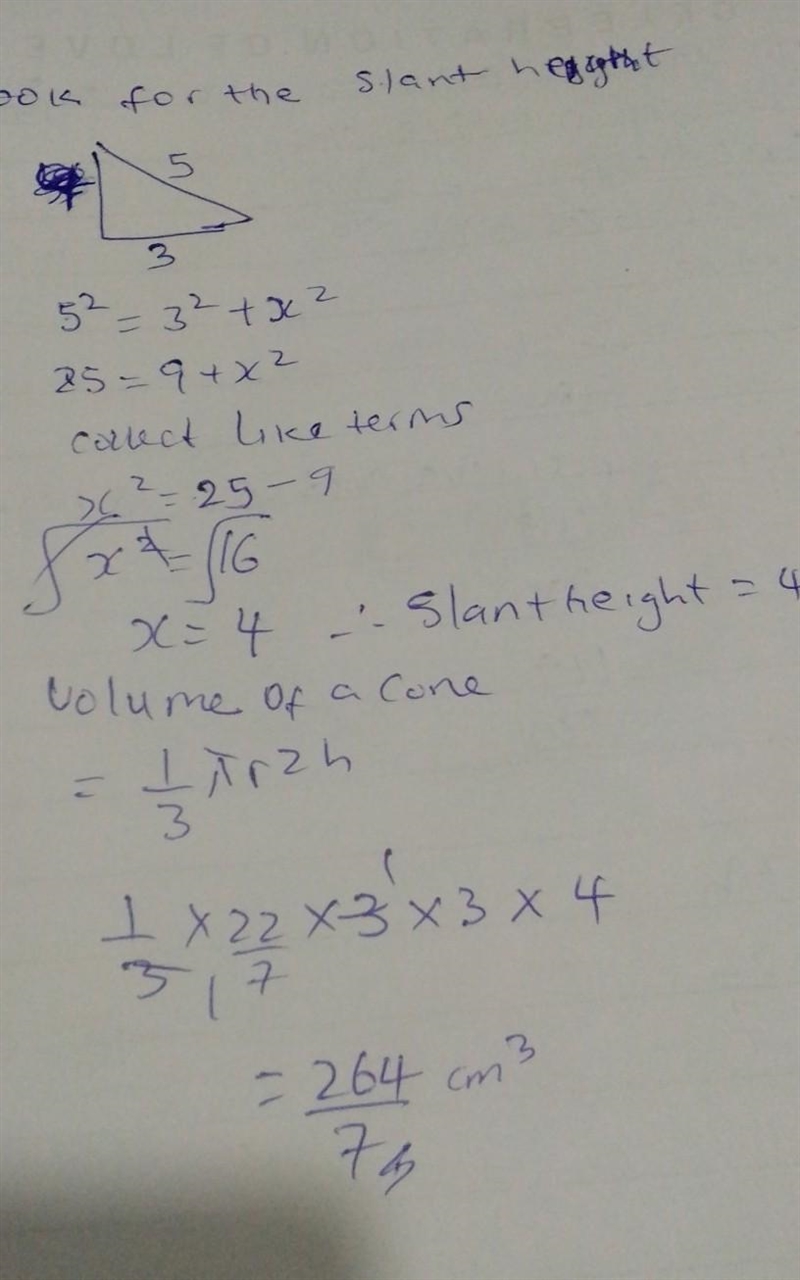 for the slant height
5
3
5² = 3² + x²
25 = 9 + x²
collect like terms
x² = 25 - 9
√x² = √16
x = 4 ∴ Slant height = 4
Volume of a cone
= 1/3 πr2h
1/3 × 22/7 × 3 × 3 × 4
1
1
= 264/7 cm³